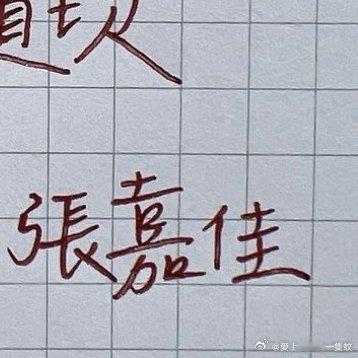 張嘉佳
@愛上 一隻蚊